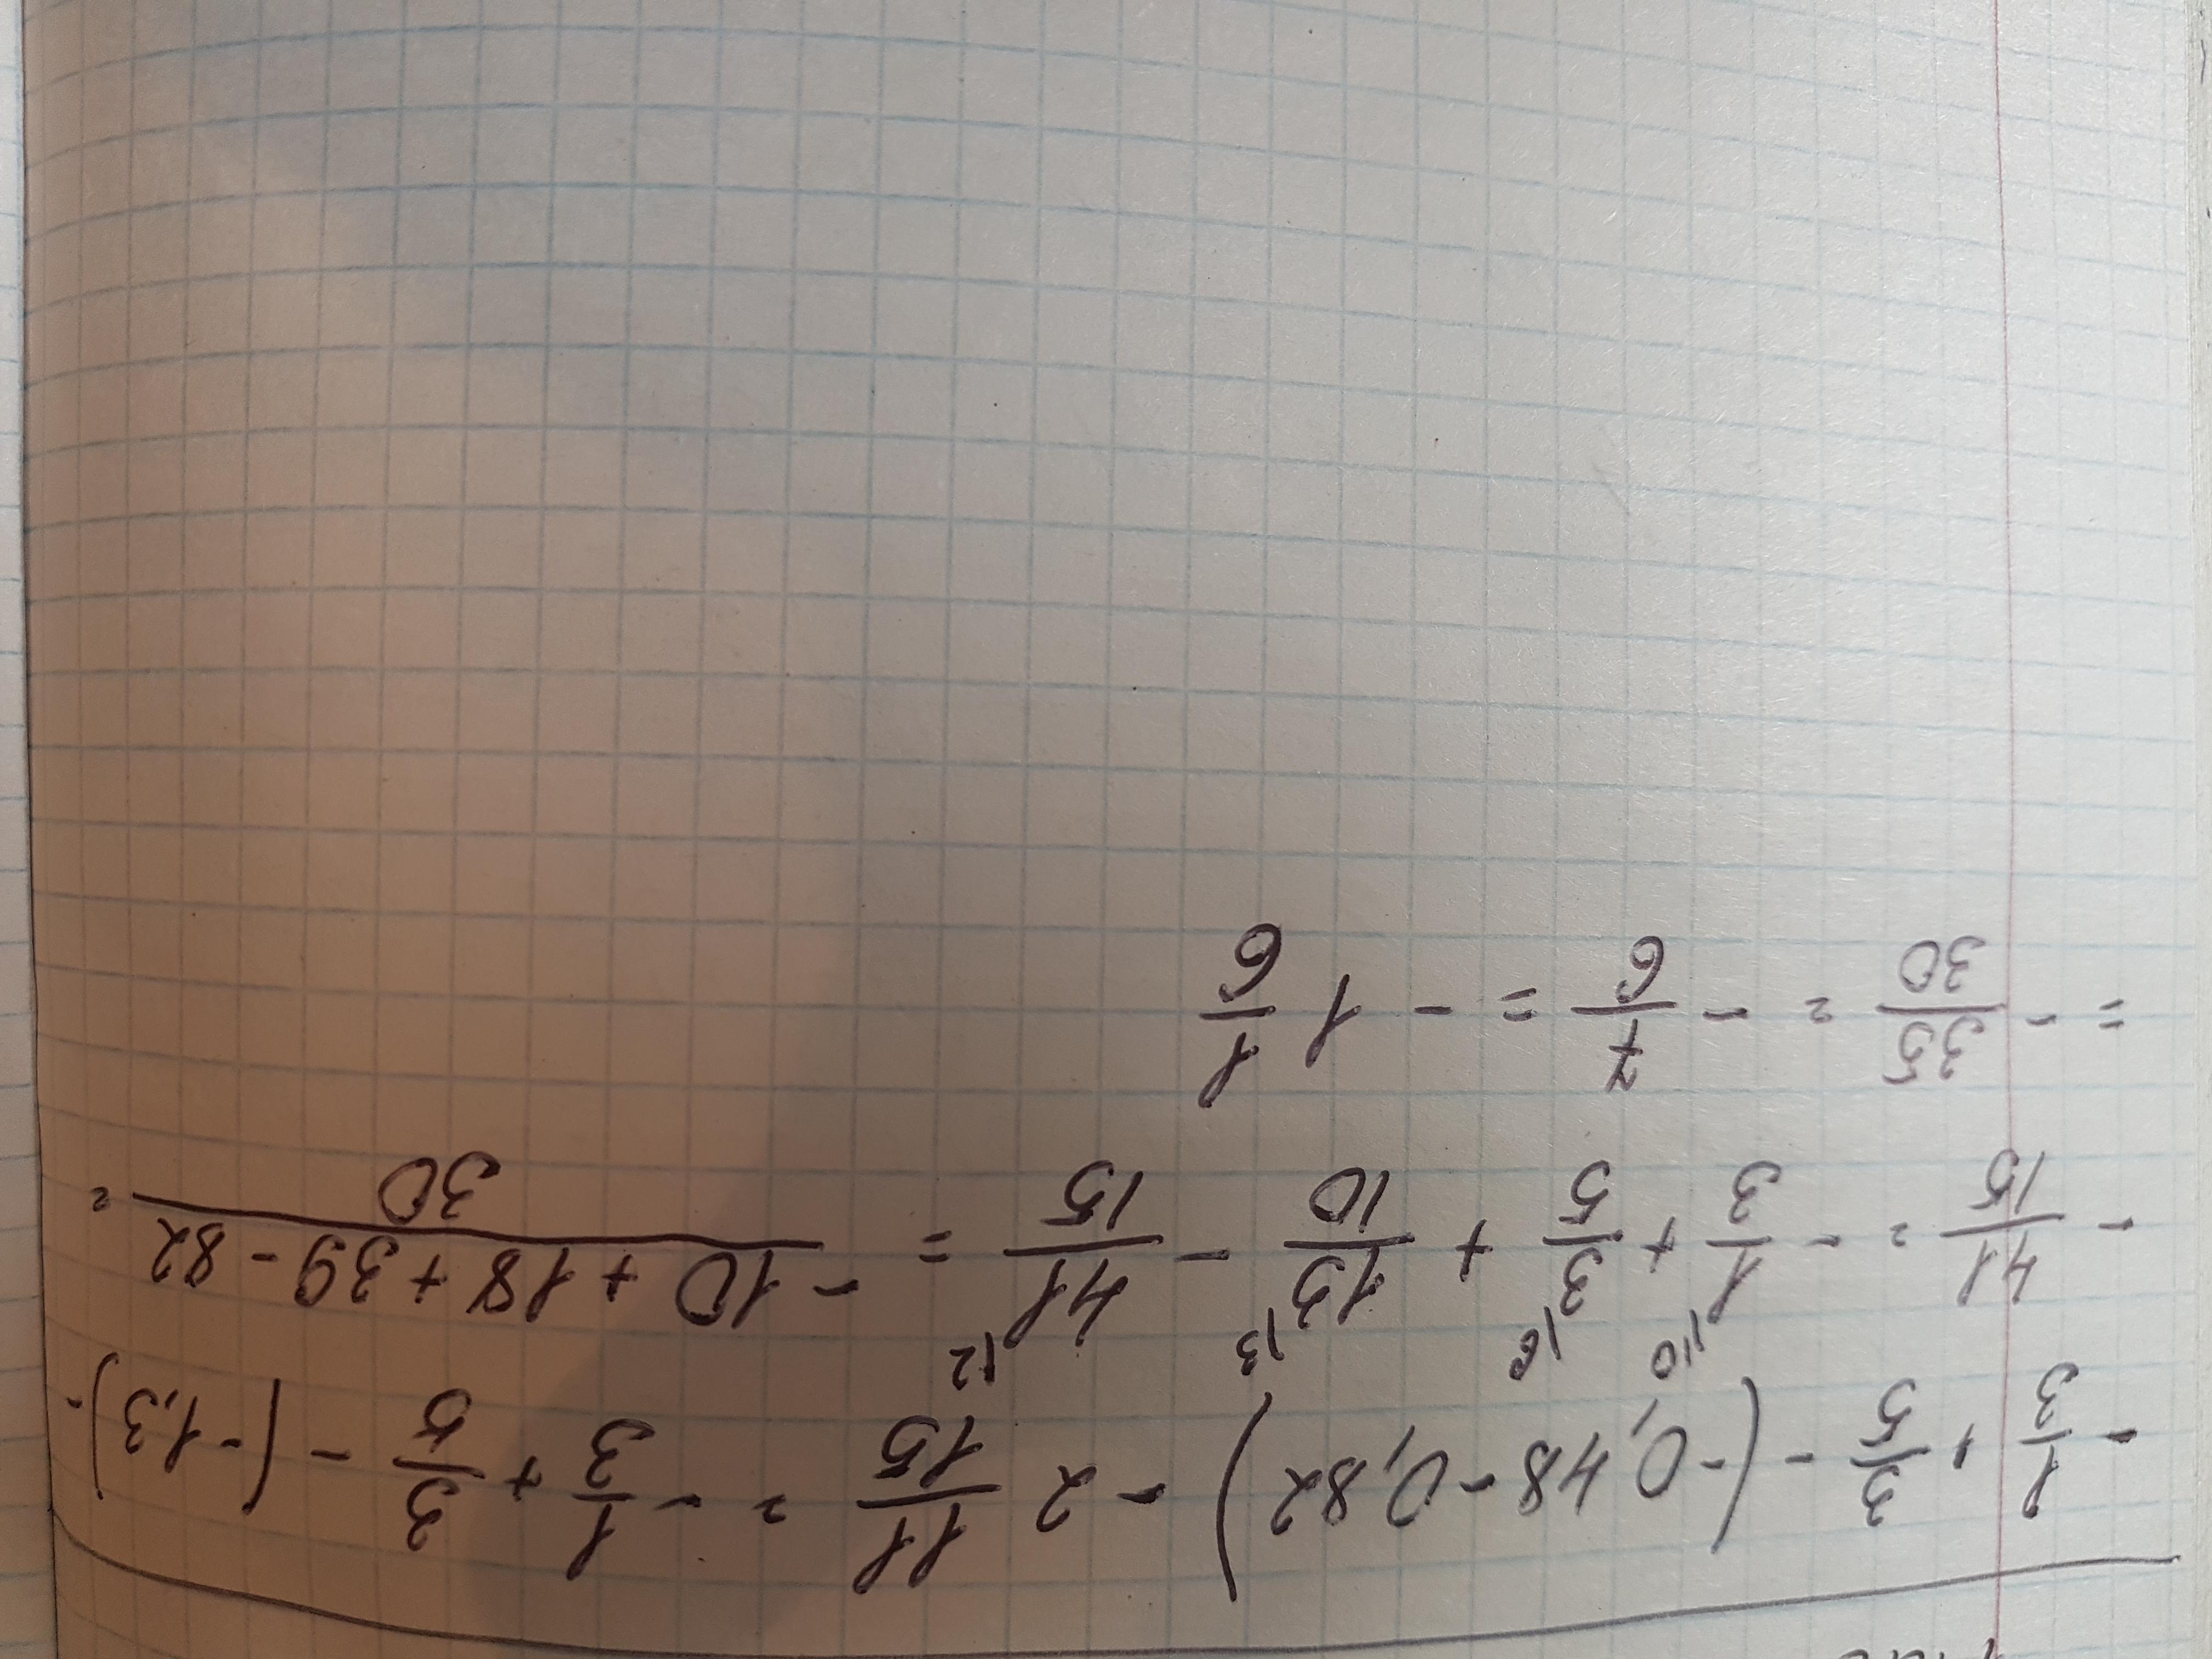 - 1/3 + 3/5 - (-0,48 - 0,82) - 2 11/15 = - 1/3 + 3/5 - (-1,3) -
- 41/15 = - 1/3 \10 + 3/5 \6 + 13/10 \3 - 41/15 \2 = (-10 + 18 + 39 - 82)/30 =
= - 35/30 = - 7/6 = - 1 1/6